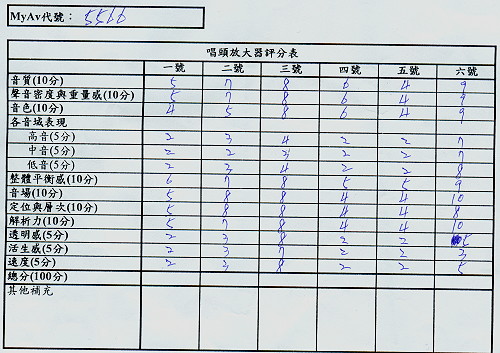 MyAv代號： 5566
唱頭放大器評分表
一號 二號 三號 四號 五號 六號
音質(10分) 5 7 8 6 4 9
聲音密度與重量感(10分) 5 7 8 6 4 9
音色(10分) 4 5 8 6 4 9
各音域表現
高音(5分) 2 3 4 2 2 7
中音(5分) 2 2 3 2 2 7
低音(5分) 2 3 4 2 2 8
整體平衡感(10分) 6 7 8 5 5 9
音場(10分) 5 8 8 4 4 10
定位與層次(10分) 5 8 8 4 4 8
解析力(10分) 5 7 8 4 4 10
透明感(5分) 2 3 8 2 2 5
活生感(5分) 2 3 7 2 2 3
速度(5分) 2 3 8 2 2 5
總分(100分)
其他補充